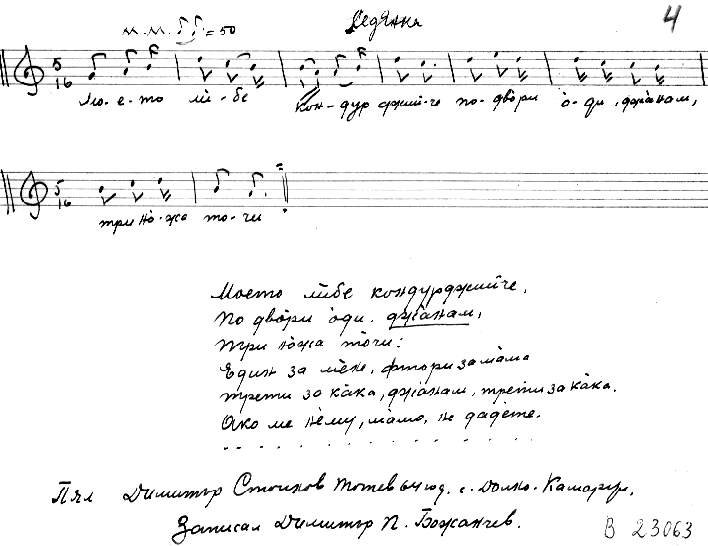 Седянка
4
М.М. = 50
5 16
Мо-е-то ли-бе кон-дур джий-че по-двори о-ди, джанам,
5 16
три но-жа то-чи
Моето либе кондурджийче,
По двори оди. джанам,
Три ножа точи:
Един за мене, фтори за мама
трети за кака, джанам, трети за кака.
Ако ме нему, мамо, не дадете.
Пял Димитър Стоинов Тотев 64 год. с. Долно-Камарци.
Записал Димитър П. Божанчев.
В 23063